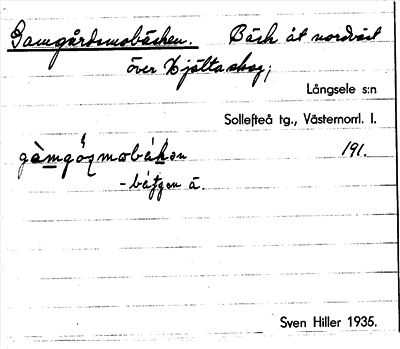 Gamgårdsmobäcken. Bäck åt nordväst
över Hjältaskog;
Långsele s:n
Sollefteå tg., Västernorrl. l.
gàmgóʒmobákən 191.
-bátjen ä.
Sven Hiller 1935.